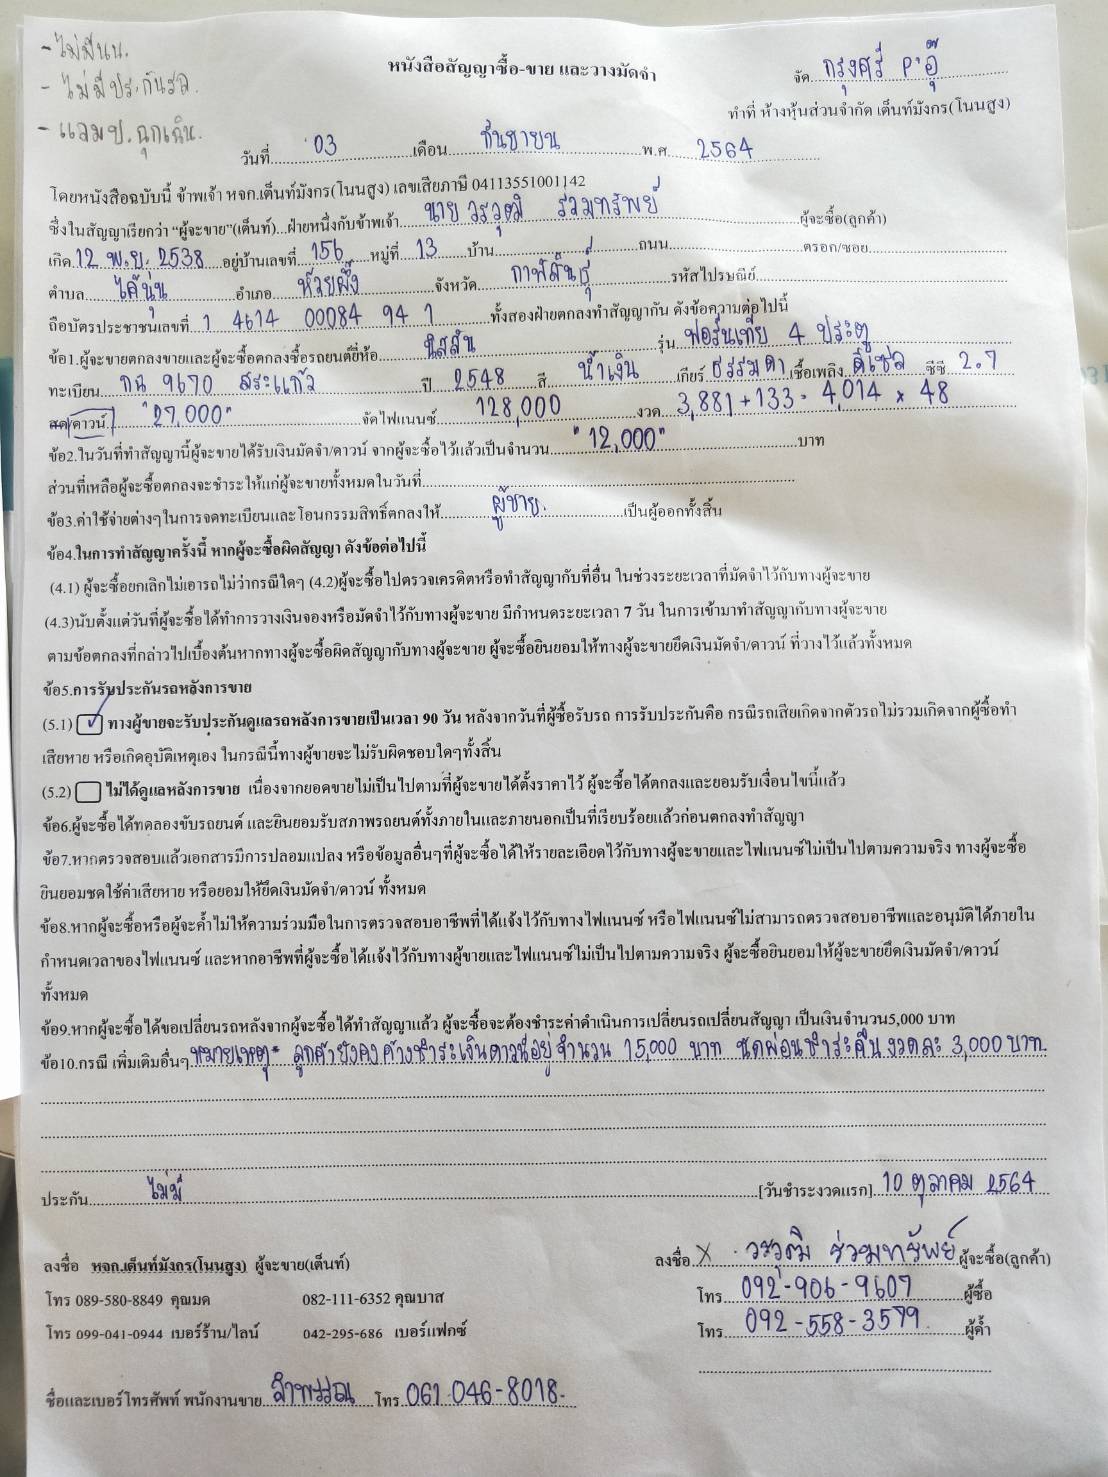 - ไม่มีนน.
- ไม่มีประกันรถ.
- แถมป.ฉุกเฉิน.
หนังสือสัญญาซื้อ-ขาย และวางมัดจำ
จัด กรุงศรี P'อุ๊
ทำที่ ห้างหุ้นส่วนจำกัด เต็นท์มังกร(โนนสูง)
วันที่ 03 เดือน กันยายน พ.ศ. 2564
โดยหนังสือฉบับนี้ ข้าพเจ้า หจก.เต็นท์มังกร(โนนสูง) เลขเสียภาษี 04113551001142
ซึ่งในสัญญาเรียกว่า "ผู้จะขาย"(เต็นท์)...ฝ่ายหนึ่งกับข้าพเจ้า นาย วรวุฒิ ร่วมทรัพย์ ผู้จะซื้อ(ลูกค้า)
เกิด 12 พ.ย. 2538 อยู่บ้านเลขที่ 156 หมู่ที่ 13 บ้าน ถนน ตรอก/ซอย
ตำบล ไค้นุ่น อำเภอ ห้วยผึ้ง จังหวัด กาฬสินธุ์ รหัสไปรษณีย์
ถือบัตรประชาชนเลขที่ 1 4614 00084 94 1 ทั้งสองฝ่ายตกลงทำสัญญากัน ดังข้อความต่อไปนี้
ข้อ1.ผู้จะขายตกลงขายและผู้จะซื้อตกลงซื้อรถยนต์ยี่ห้อ นิสสัน รุ่น ฟรอนเทีย 4 ประตู
ทะเบียน กฉ 9670 สระแก้ว ปี 2548 สี น้ำเงิน เกียร์ ธรรมดา เชื้อเพลิง ดีเซล ซีซี 2.7
สด/ดาวน์ "27,000" จัดไฟแนนซ์ 128,000 งวด 3,881 + 133 = 4,014 × 48
ข้อ2.ในวันที่ทำสัญญานี้ผู้จะขายได้รับเงินมัดจำ/ดาวน์ จากผู้จะซื้อไว้แล้วเป็นจำนวน "12,000" บาท
ส่วนที่เหลือผู้จะซื้อตกลงจะชำระให้แก่ผู้จะขายทั้งหมดในวันที่
ข้อ3.ค่าใช้จ่ายต่างๆในการจดทะเบียนและโอนกรรมสิทธิ์ตกลงให้ ผู้ขาย. เป็นผู้ออกทั้งสิ้น
ข้อ4.ในการทำสัญญาครั้งนี้ หากผู้จะซื้อผิดสัญญา ดังข้อต่อไปนี้
(4.1) ผู้จะซื้อยกเลิกไม่เอารถไม่ว่ากรณีใดๆ (4.2)ผู้จะซื้อไปตรวจเครดิตหรือทำสัญญากับที่อื่น ในช่วงระยะเวลาที่มัดจำไว้กับทางผู้จะขาย
(4.3)นับตั้งแต่วันที่ผู้จะซื้อได้ทำการวางเงินจองหรือมัดจำไว้กับทางผู้จะขาย มีกำหนดระยะเวลา 7 วัน ในการเข้ามาทำสัญญากับทางผู้จะขาย
ตามข้อตกลงที่กล่าวไปเบื้องต้นหากทางผู้จะซื้อผิดสัญญากับทางผู้จะขาย ผู้จะซื้อยินยอมให้ทางผู้จะขายยึดเงินมัดจำ/ดาวน์ ที่วางไว้แล้วทั้งหมด
ข้อ5.การรับประกันรถหลังการขาย
(5.1) ✓ ทางผู้ขายจะรับประกันดูแลรถหลังการขายเป็นเวลา 90 วัน หลังจากวันที่ผู้ซื้อรับรถ การรับประกันคือ กรณีรถเสียเกิดจากตัวรถไม่รวมเกิดจากผู้ซื้อทำ
เสียหาย หรือเกิดอุบัติเหตุเอง ในกรณีนี้ทางผู้ขายจะไม่รับผิดชอบใดๆทั้งสิ้น
(5.2) ไม่ได้ดูแลหลังการขาย เนื่องจากยอดขายไม่เป็นไปตามที่ผู้จะขายได้ตั้งราคาไว้ ผู้จะซื้อได้ตกลงและยอมรับเงื่อนไขนี้แล้ว
ข้อ6.ผู้จะซื้อได้ทดลองขับรถยนต์ และยินยอมรับสภาพรถยนต์ทั้งภายในและภายนอกเป็นที่เรียบร้อยแล้วก่อนตกลงทำสัญญา
ข้อ7.หากตรวจสอบแล้วเอกสารมีการปลอมแปลง หรือข้อมูลอื่นๆที่ผู้จะซื้อได้ให้รายละเอียดไว้กับทางผู้จะขายและไฟแนนซ์ไม่เป็นไปตามความจริง ทางผู้จะซื้อ
ยินยอมชดใช้ค่าเสียหาย หรือยอมให้ยึดเงินมัดจำ/ดาวน์ ทั้งหมด
ข้อ8.หากผู้จะซื้อหรือผู้จะค้ำไม่ให้ความร่วมมือในการตรวจสอบอาชีพที่ได้แจ้งไว้กับทางไฟแนนซ์ หรือไฟแนนซ์ไม่สามารถตรวจสอบอาชีพและอนุมัติได้ภายใน
กำหนดเวลาของไฟแนนซ์ และหากอาชีพที่ผู้จะซื้อได้แจ้งไว้กับทางผู้ขายและไฟแนนซ์ไม่เป็นไปตามความจริง ผู้จะซื้อยินยอมให้ผู้จะขายยึดเงินมัดจำ/ดาวน์
ทั้งหมด
ข้อ9.หากผู้จะซื้อได้ขอเปลี่ยนรถหลังจากผู้จะซื้อได้ทำสัญญาแล้ว ผู้จะซื้อจะต้องชำระค่าดำเนินการเปลี่ยนรถเปลี่ยนสัญญา เป็นเงินจำนวน5,000 บาท
ข้อ10.กรณี เพิ่มเติมอื่นๆ หมายเหตุ* ลูกค้ายังคงค้างชำระเงินดาวน์อยู่จำนวน 15,000 บาท นัดผ่อนชำระคืนงวดละ 3,000 บาท.
ประกัน ไม่มี [วันชำระงวดแรก] 10 ตุลาคม 2564
ลงชื่อ หจก.เต็นท์มังกร(โนนสูง) ผู้จะขาย(เต็นท์) ลงชื่อ X วรวุฒิ ร่วมทรัพย์ ผู้จะซื้อ(ลูกค้า)
โทร 089-580-8849 คุณมด 082-111-6352 คุณบาส โทร 092-906-9607 ผู้ซื้อ
โทร 099-041-0944 เบอร์ร้าน/ไลน์ 042-295-686 เบอร์แฟกซ์ โทร 092-558-3579 ผู้ค้ำ
ชื่อและเบอร์โทรศัพท์ พนักงานขาย ลำพรรณ โทร 061-046-8018-